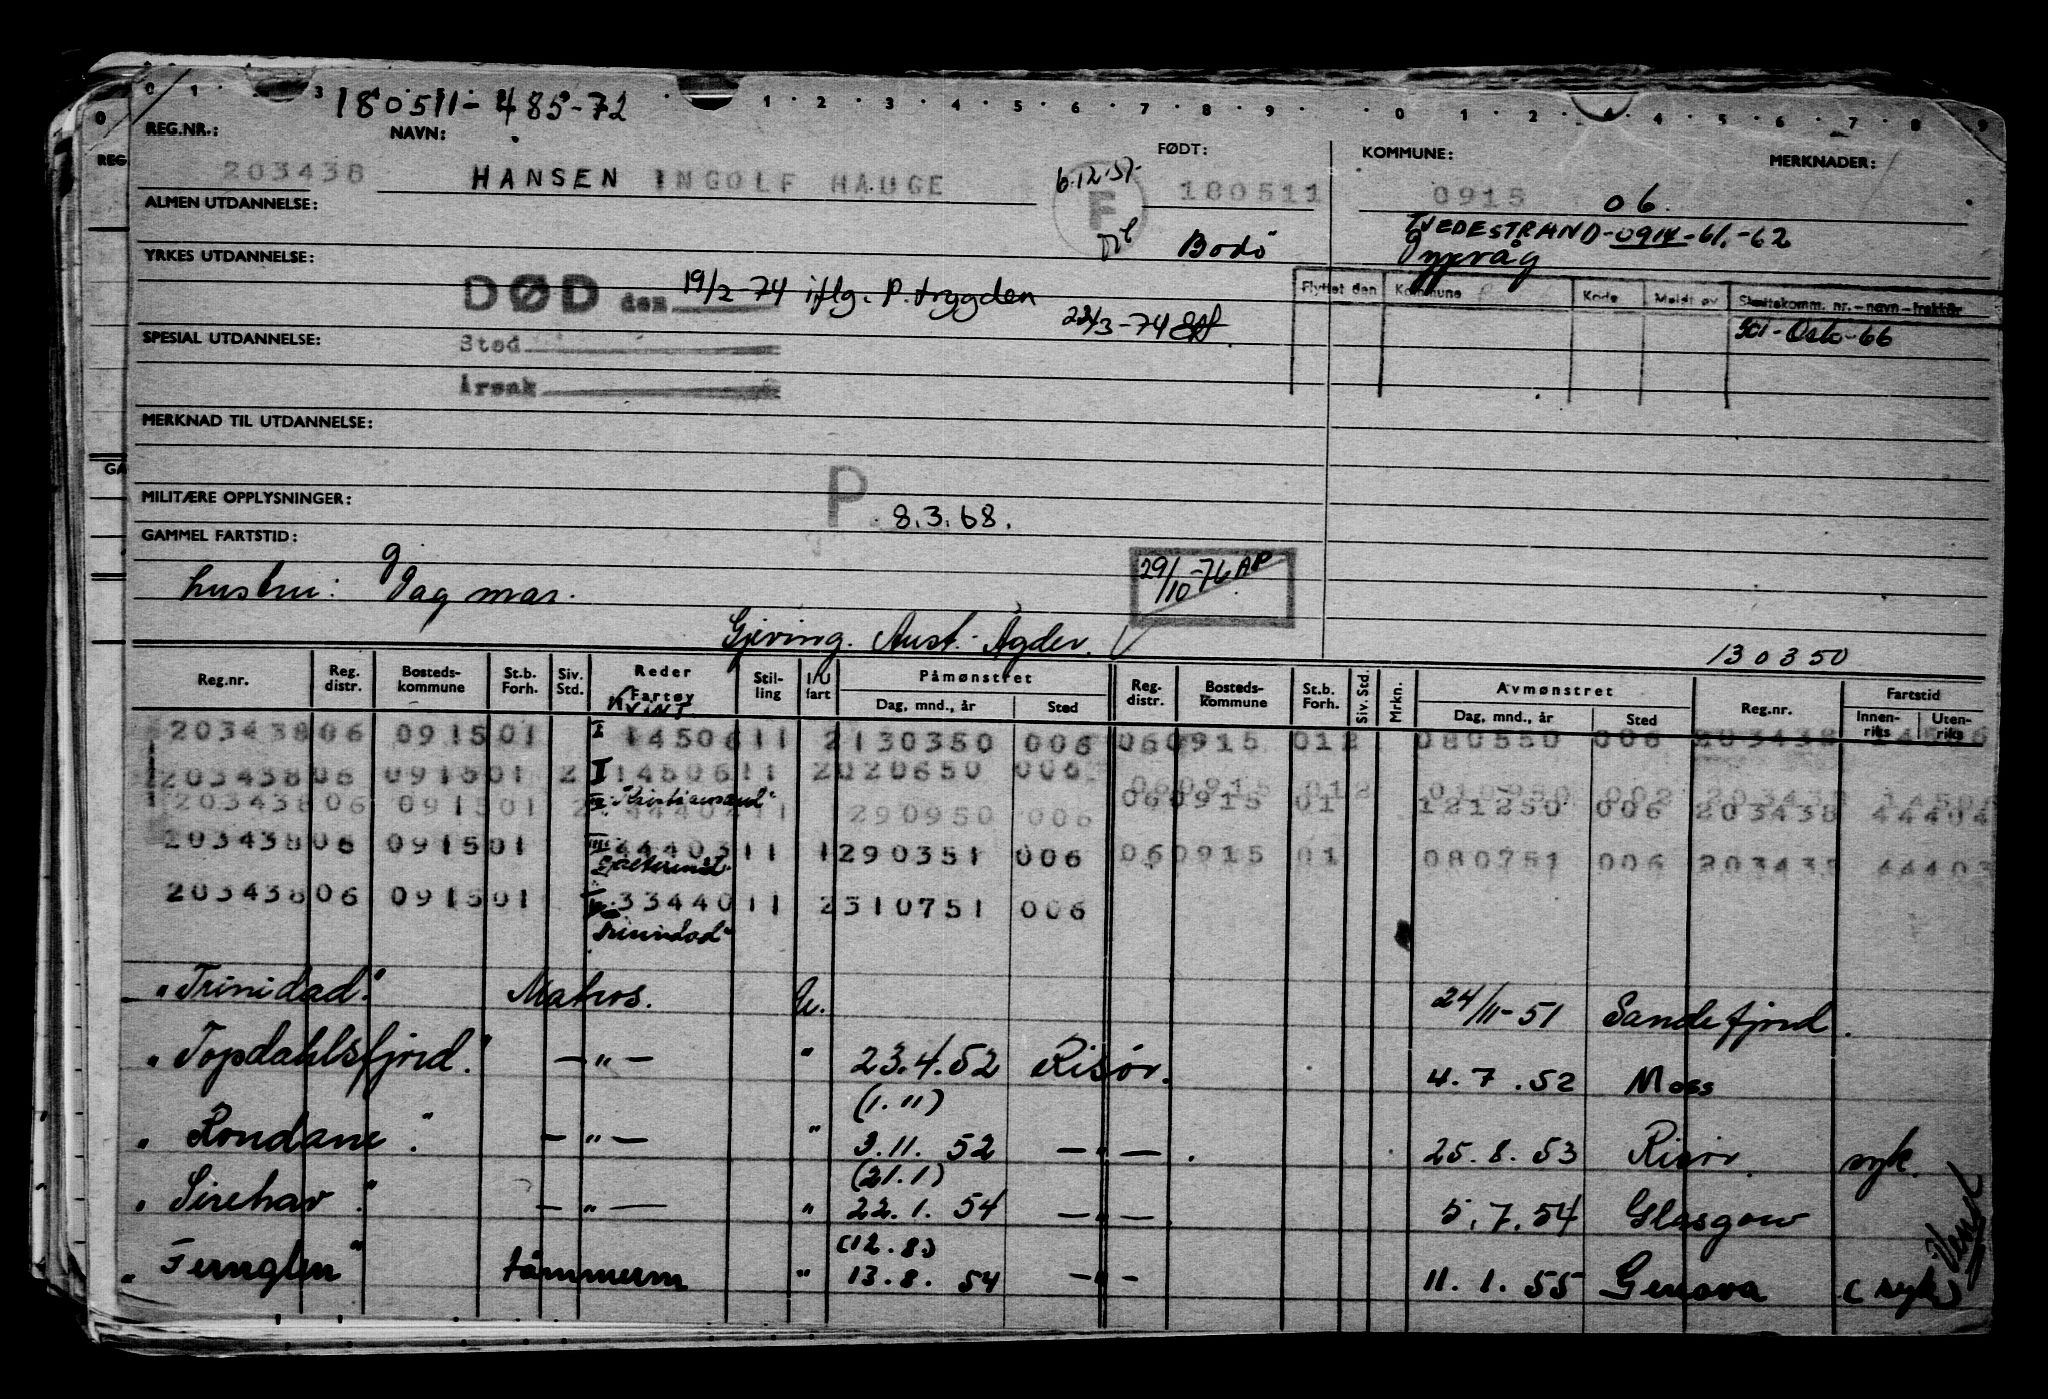 0 1 3 1 2 3 4 5 6 7 8 9 0 1 2 4 5 6 7 8 9
180511-485-72
REG.NR.: NAVN: FØDT: KOMMUNE: MERKNADER:
203438 HANSEN INGOLF HAUGE 6.12.51. F 180511 0915 06.
ALMEN UTDANNELSE: TVEDESTRAND-0914-61.-62
Bodö
YRKES UTDANNELSE:
DØD den 19/2-74 iflg. P. trygden
23/3-74
Flyttet den Kommune Kode Meldt av Skattekomm. nr.-navn-trekkår
Oslo-66
SPESIAL UTDANNELSE: Sted
Årsak
MERKNAD TIL UTDANNELSE:
MILITÆRE OPPLYSNINGER: P. 8.3.68.
GAMMEL FARTSTID:
hustru: Dagmar.
29/10-76 AP
Gjeving. Aust-Agder.
130350
Reg.nr. Reg. distr. Bosteds-kommune St.b. Forh. Siv. Std. Reder Fartøy Stil-ling I/U fart Påmønstret Dag, mnd., år Sted Reg. distr. Bosteds-kommune St.b. Forh. Siv. Std. Mrkn. Avmønstret Dag, mnd., år Sted Reg.nr. Fartstid Innen-riks Uten-riks
203438 06 0915 01 I 14506 11 2 130350 006 06 0915 01 2 080550 006 203438 14506
203438 06 0915 01 2 II 14506 11 2 020650 006 06 0915 01 2 006 203438
"Kristiansand"
203438 06 0915 01 2 44404 11 290950 006 06 0915 01 121250 006 203438 44404
203438 06 0915 01 III 44403 11 1 290351 006 06 0915 01 080751 006 203438 44403
203438 06 0915 01 33440 11 2 310751 006
"Trinidad"
"Trinidad." Matros. U. 24/11-51 Sandefjord.
"Topdahlsfjord." -"- " 23.4.52 Risør. 4.7.52 Moss
(1.11)
"Rondane." -"- " 3.11.52 -"-. 25.8.53 Risør. syk.
(21.1)
"Sirehav." -"- " 22.1.54 -"- 5.7.54 Glasgow
(12.8)
"Fernglen" tømmerm " 13.8.54 -"- 11.1.55 Genova (syk)
Vend